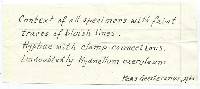 Context of all specimens with faint
traces of bluish lines.
Hyphae with clamp connections.
Undoubtedly Hydnellum
Maas Geesteranus,